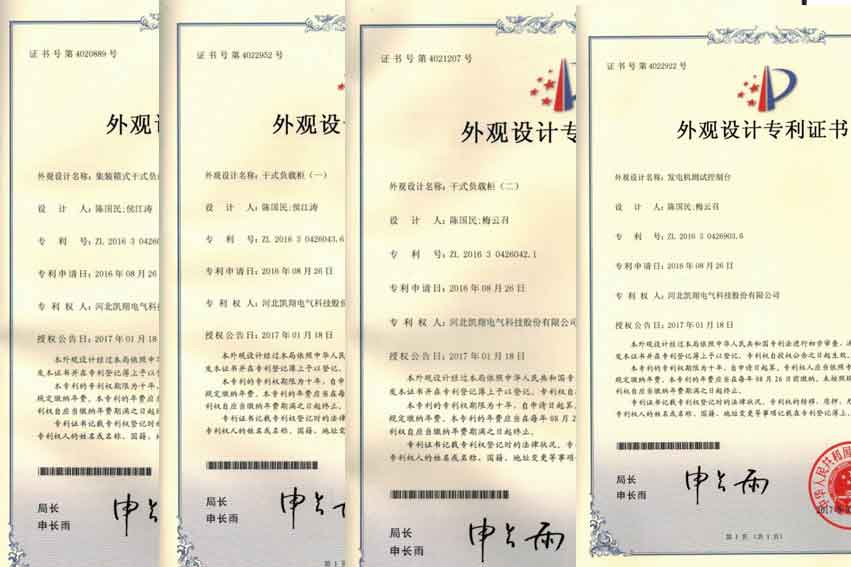 证书号第4020889号
外观设
外观设计名称：集装箱式干式负
设计人：陈国民;侯江涛
专利号：ZL 2016 3 0426
专利申请日：2016年08月26
专利权人：河北凯翔电气科
授权公告日：2017年01月18
本外观设计经过本局依照中
发本证书并在专利登记簿上予以登
本专利的专利权期限为十年,
规定缴纳年费。本专利的年费应
利权自应当缴纳年费期满之日起
专利证书记载专利权登记时
专利权人的姓名或名称、国籍、
局长
申长雨
证书号第4022952号
外观设计
外观设计名称：干式负载柜（一）
设计人：陈国民;侯江涛
专利号：ZL 2016 3 0426043.6
专利申请日：2016年08月26日
专利权人：河北凯翔电气科技股份
授权公告日：2017年01月18日
本外观设计经过本局依照中华人民
发本证书并在专利登记簿上予以登记。
本专利的专利权期限为十年，自申
规定缴纳年费。本专利的年费应当在每
利权自应当缴纳年费期满之日起终止。
专利证书记载专利权登记时的法律
专利权人的姓名或名称、国籍、地址变
局长
申长雨
证书号第4021207号
外观设计专
外观设计名称：干式负载柜（二）
设计人：陈国民;梅云召
专利号：ZL 2016 3 0426042.1
专利申请日：2016年08月26日
专利权人：河北凯翔电气科技股份有限公司
授权公告日：2017年01月18日
本外观设计经过本局依照中华人民共和国专
发本证书并在专利登记簿上予以登记。专利权
本专利的专利权期限为十年，自申请日起算。
规定缴纳年费。本专利的年费应当在每年08月2
利权自应当缴纳年费期满之日起终止。
专利证书记载专利权登记时的法律状况。专
专利权人的姓名或名称、国籍、地址变更等事项
局长
申长雨
证书号第4022922号
外观设计专利证书
外观设计名称：发电机测试控制台
设计人：陈国民;梅云召
专利号：ZL 2016 3 0426903.6
专利申请日：2016年08月26日
专利权人：河北凯翔电气科技股份有限公司
授权公告日：2017年01月18日
本外观设计经过本局依照中华人民共和国专利法进行初步审查，决
发本证书并在专利登记簿上予以登记。专利权自授权公告之日起生效。
本专利的专利权期限为十年，自申请日起算。专利权人应当依照专
规定缴纳年费。本专利的年费应当在每年08月26日前缴纳。未按照规
利权自应当缴纳年费期满之日起终止。
专利证书记载专利权登记时的法律状况。专利权的转移、质押、无
专利权人的姓名或名称、国籍、地址变更等事项记载在专利登记簿上。
局长
申长雨
中华人民共和国
第1页（共1页）